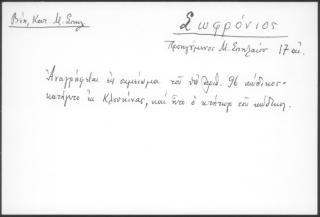 Βιβ, Κατ. Μ. Σπηλ.
Σωφρόνιος
Προηγούμενος Μ. Σπηλαίου 17 αἰ.
Ἀναγράφεται ἐν σημείωμα τοῦ ὑπ' ἀριθ. 96 κώδικος·
κατήγετο ἐκ Κλουκίνας, καὶ ἦτο ὁ κτήτωρ τοῦ κώδικος.